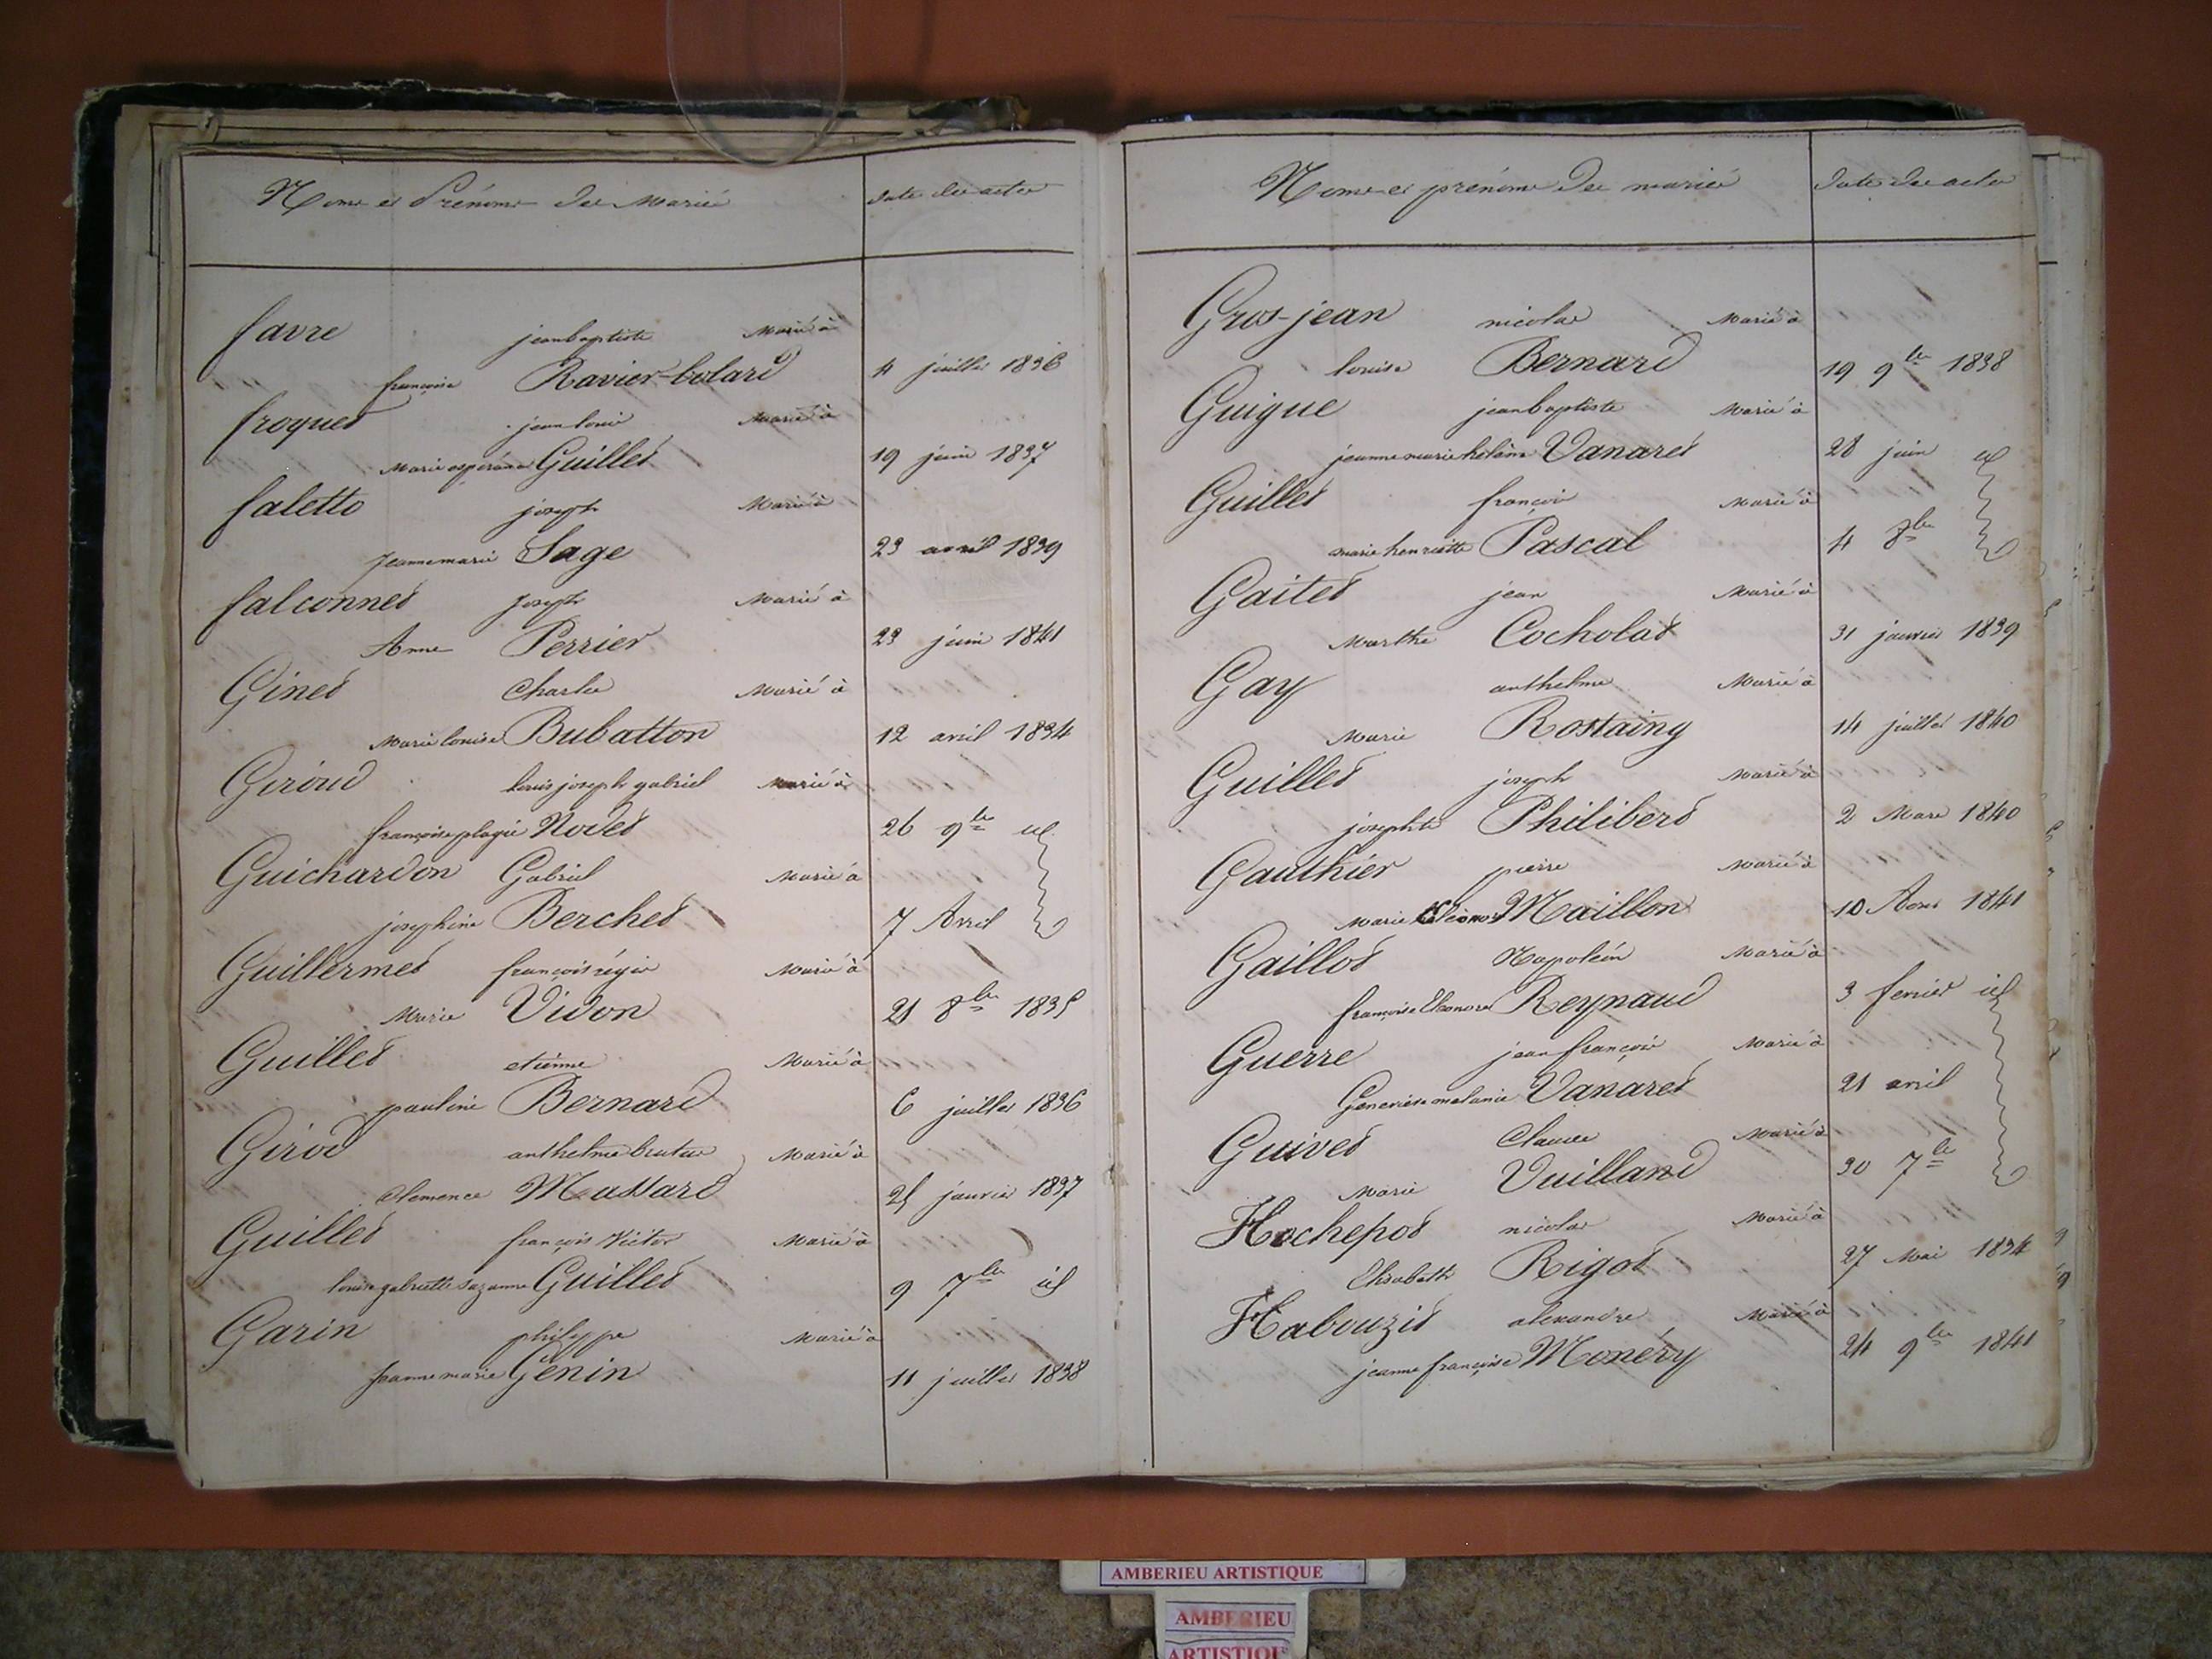 Noms et Prénoms des Mariés
date des actes
favre jean baptiste Marié à
françoise Ravier-bolard 4 juillet 1836
froquet jean louis Marié à
Marie espérance Guillet 19 juin 1837
faletto joseph Marié à
Jeanne marie Sage 23 avril 1839
falconnet Joseph Marié à
Anne Perrier 23 juin 1841
Ginet Charles Marié à
Marie louise Bubatton 12 avril 1834
Giroud louis joseph gabriel Marié à
françoise plagie Nodet 26 9bre id
Guichardon Gabriel Marié à
josephine Berchet 7 Avril
Guillermet françois régis Marié à
Marie Vidon 21 8bre 1835
Guillet etienne Marié à
pauline Bernard 6 juillet 1836
Girod anthelme brutus Marié à
Clemence Massard 25 janvier 1837
Guillet françois Victor Marié à
louise gabrielle suzanne Guillet 9 7bre id
Garin philippe Marié à
Jeanne marie Génin 11 juillet 1838
Noms et prénoms des mariés
date des actes
Gros-jean nicolas Marié à
louise Bernard 19 9bre 1838
Guigue jean baptiste Marié à
jeanne marie helène Vanaret 28 juin id
Guillet françois Marié à
marie henriette Pascal 4 8bre
Gaitet jean Marié à
Marthe Cocholat 31 janvier 1839
Gay anthelme Marié à
Marie Rostaing 14 juillet 1840
Guillet joseph Marié à
josephte Philibert 2 Mars 1840
Gauthier pierre Marié à
Marie Eléonore Maillon 10 Aout 1841
Gaillot Napoléon Marié à
françoise Eléonore Reynaud 3 fevrier id
Guerre jean françois Marié à
Geneviève melanie Vanaret 21 avril
Guivet Claude Marié à
Marie Vuilland 30 7bre
Hochepot nicolas Marié à
Elisabeth Rigot 27 Mai 1834
Habouzit alexandre Marié à
jeanne françoise Monéry 24 9bre 1841
AMBERIEU ARTISTIQUE
AMBERIEU
ARTISTIQUE